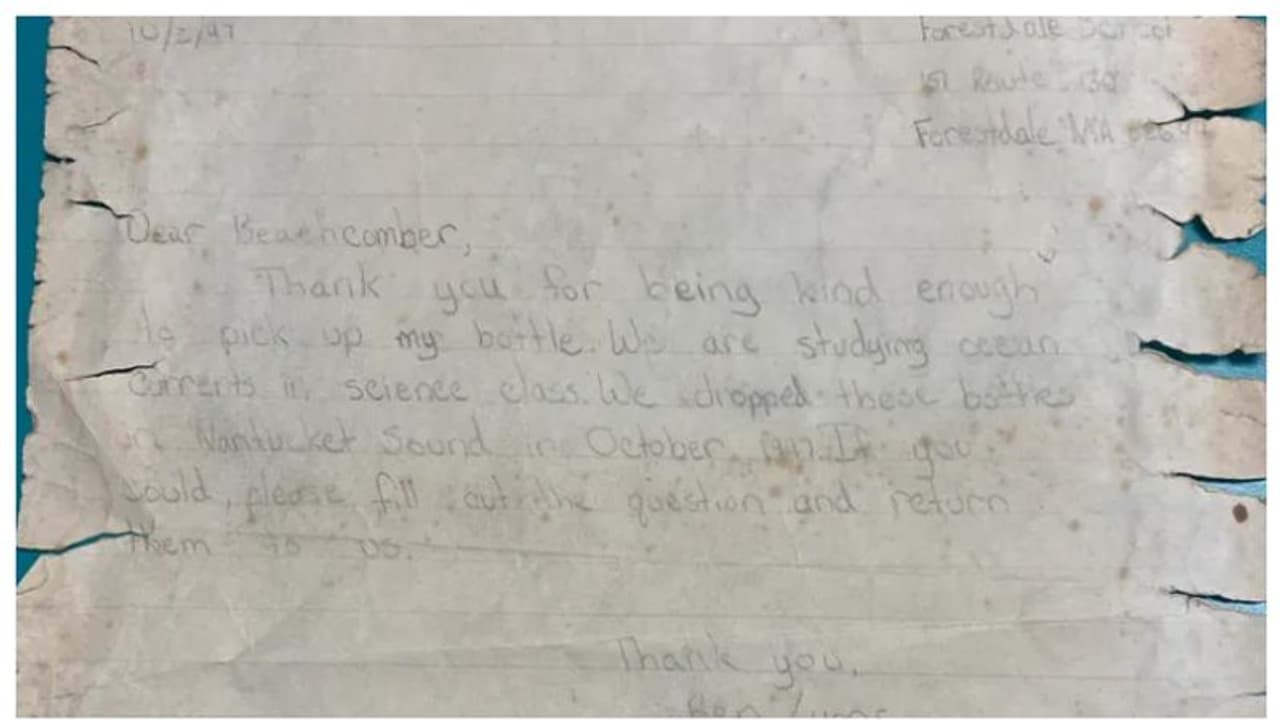 10/2/97
Forestdale School
151 Route 130
Forestdale MA 02644
Dear Beachcomber,
Thank you for being kind enough
to pick up my bottle. We are studying ocean
currents in science class. We dropped these bottles
in Nantucket Sound in October 1997. If you
could, please fill out the question and return
them to us.
Thank you,
Ben